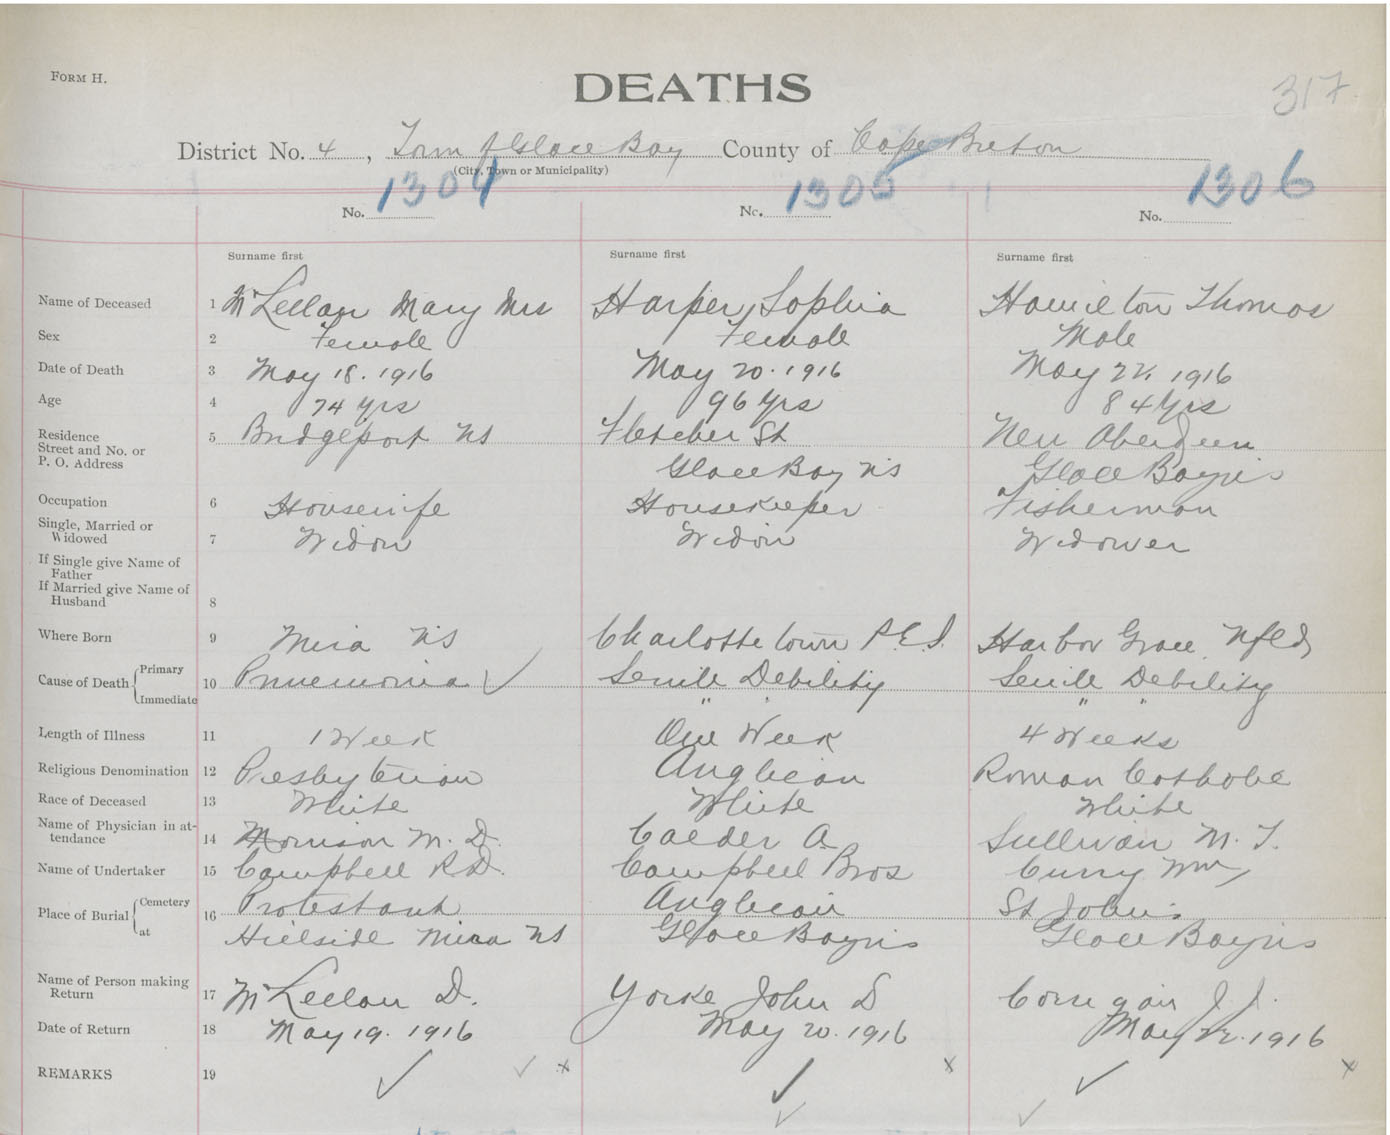 FORM H.
DEATHS
317
District No. 4, Town of Glace Bay County of Cape Breton
(City, Town or Municipality)
No. 1304 No. 1305 No. 1306
Surname first Surname first Surname first
Name of Deceased 1 McLellan Mary Mrs Harper, Sophia Hamilton Thomas
Sex 2 Female Female Male
Date of Death 3 May 18. 1916 May 20. 1916 May 22. 1916
Age 4 74 yrs 96 yrs 84 yrs
Residence 5 Bridgeport NS Fletcher St New Aberdeen
Street and No. or
P. O. Address Glace Bay NS Glace Bay NS
Occupation 6 Housewife Housekeeper Fisherman
Single, Married or
Widowed 7 Widow Widow Widower
If Single give Name of
Father
If Married give Name of
Husband 8
Where Born 9 Mira NS Charlottetown P.E.I. Harbor Grace, Nfld
Cause of Death Primary 10 Pnuemonia ✓ Senile Debility Senile Debility
Immediate " " " "
Length of Illness 11 1 Week One Week 4 Weeks
Religious Denomination 12 Presbyterian Anglican Roman Catholic
Race of Deceased 13 White White White
Name of Physician in at-
tendance 14 Morrison M. D. Calder A. Sullivan M. T.
Name of Undertaker 15 Campbell R D. Campbell Bros Curry Wm
Place of Burial Cemetery 16 Protestant Anglican St John's
at Hillside Mira NS Glace Bay NS Glace Bay NS
Name of Person making
Return 17 McLellan D. Yorke John S Corrigan J. J.
Date of Return 18 May 19. 1916 May 20. 1916 May 22. 1916
REMARKS 19 ✓ ✓ x ✓ x ✓ x
✓ ✓